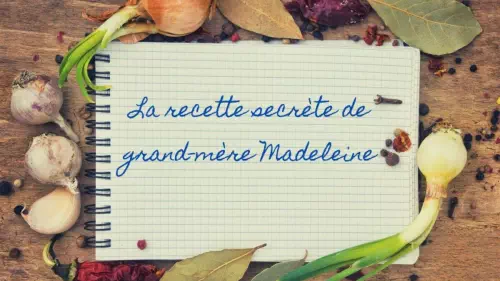 La recette secrète de
grand-mère Madeleine